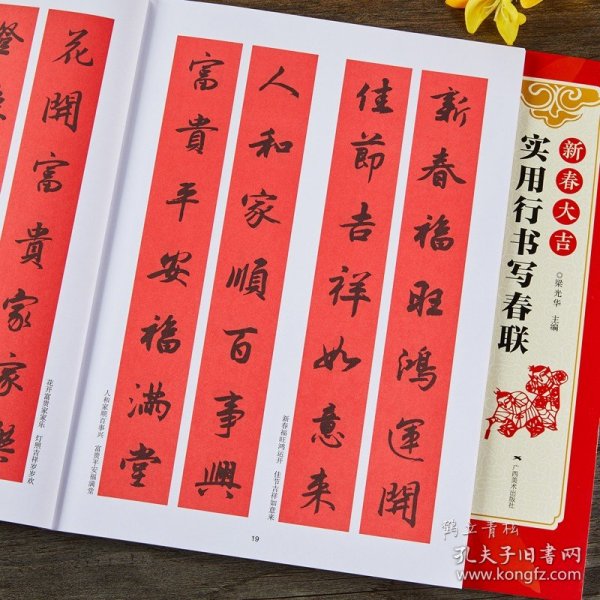 新春福旺鴻運開
佳節吉祥如意来
新春福旺鸿运开　佳节吉祥如意来
人和家順百事興
富貴平安福滿堂
人和家顺百事兴　富贵平安福满堂
19
花開富貴家家樂
花开富贵家家乐　灯照吉祥岁岁欢
新春大吉
实用行书写春联
◎梁光华　主编
广西美术出版社
鹤立青松
孔夫子旧书网
www.kongfz.com